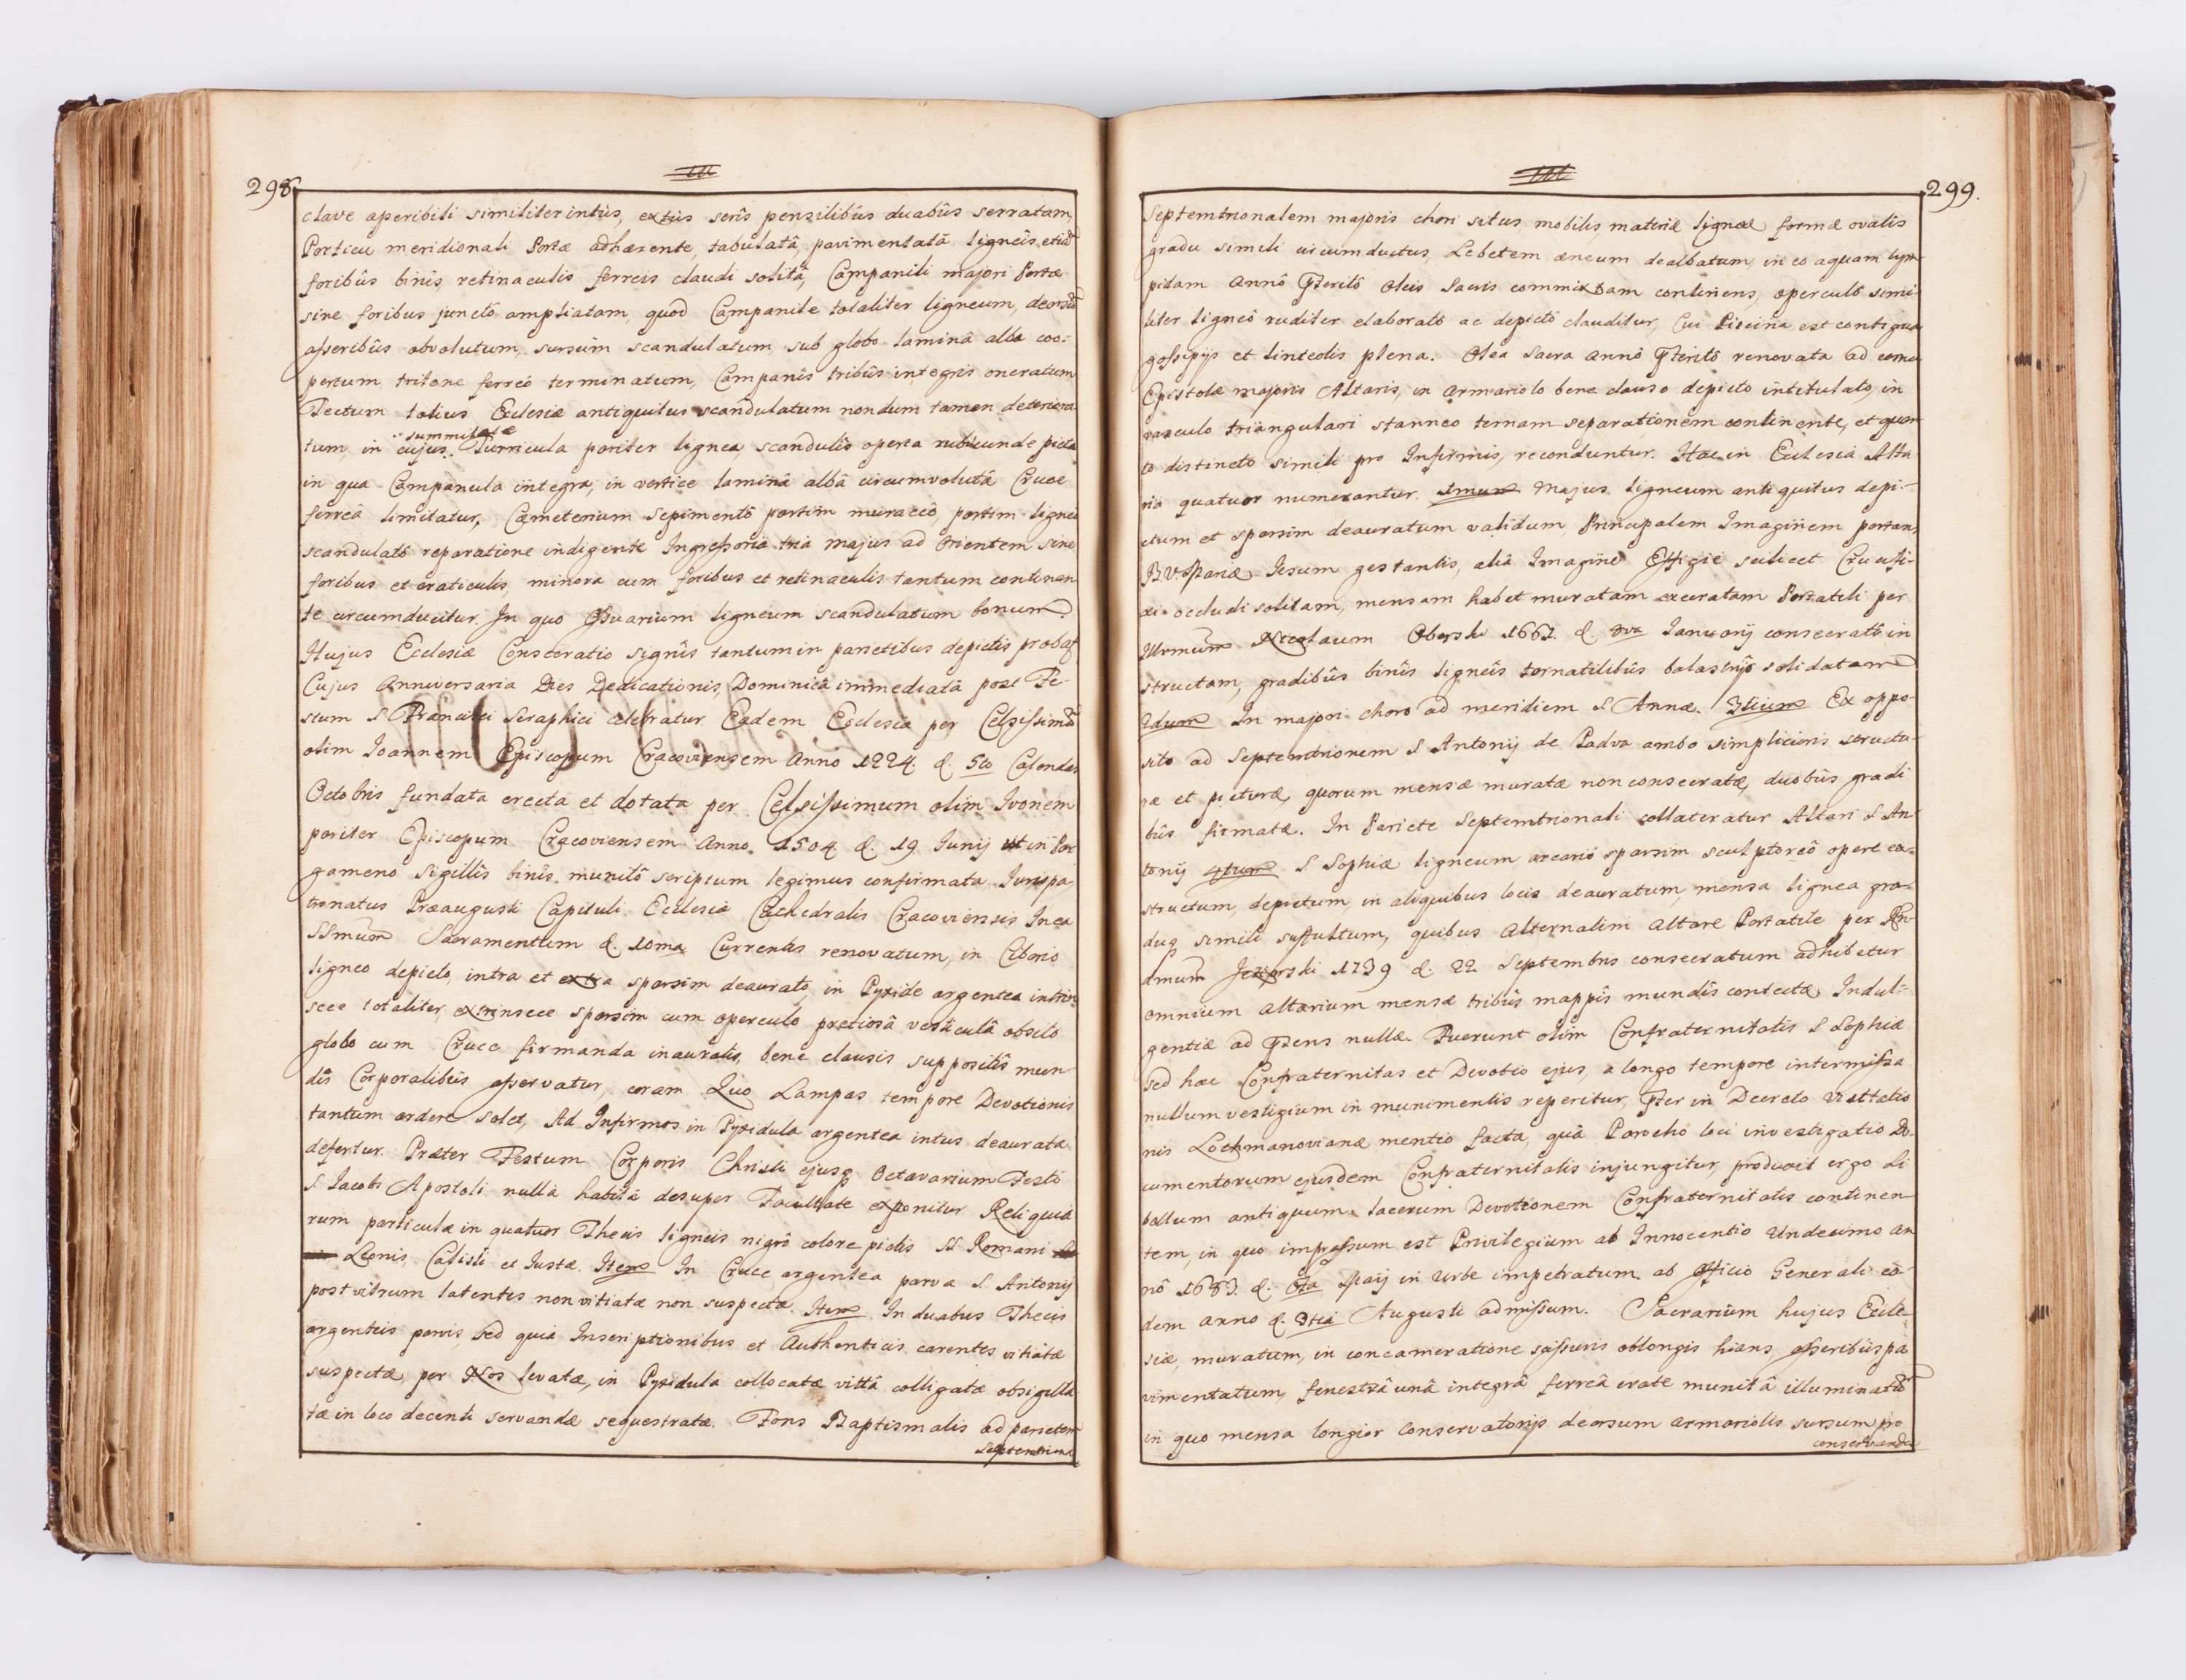 298.
clave aperibili similiter intùs, extùs serîs pensilibûs duabûs serratam,
Porticu meridionali Portæ adhærente, tabulatâ, pavimentatâ ligneîs etiã
foribûs binîs, retinaculis ferreis claudi solitâ, Campanili majori Portæ
sine foribus junctô ampliatam, quod Campanile totaliter ligneum, deorsũ
asseribûs obvolutum, sursùm scandulatum, sub globo laminâ albâ coo-
pertum tritone ferreô terminatum, Campanîs tribûs integris oneratum
Tectum totius Ecclesiæ antiquitus scandulatum nondum tamen deteriora
summitate
tum, in cujus Turricula pariter lignea, scandulis operta rubicunde picta
in qua Campanula integra, in vertice laminâ albâ circumvolutâ Cruce
ferreâ limitatur, Cæmeterium Sepimentô partim muraceô, partim ligneô
scandulatô reparatione indigente Ingressoria tria majus ad Orientem sine
foribus et craticulis, minora cum foribus et retinaculis tantum continen
te circumducitur. In quo Ossuarium ligneum scandulatum bonum.
Hujus Ecclesiæ Consecratio signîs tantum in parietibus depictis probat
Cujus Anniversaria Dies Dedicationis, Dominicâ immediatâ post Fe-
stum S Francisci Seraphici celebratur. Eadem Ecclesia per Celsissimũ
olim Joannem Episcopum Cracoviensem Anno 1224. d. 5to Calendas
Octobris fundata erecta et dotata per Celsissimum olim Ivonem
pariter Episcopum Cracoviensem Anno 1504 d. 19 Junij ut in Per
gameno Sigillîs binîs munitô scriptum legimus confirmata Jurispa
tronatus Præaugusti Capituli Ecclesiæ Cathedralis Cracoviensis In ea
SSmum Sacramentum d. 10ma Currentis renovatum, in Ciborio
ligneo depicto, intra et extra sparsim deaurato, in Pyxide argentea intrin
sece totaliter, extrinsece sparsim cum operculo pretiosâ vesticulâ obsito
globo cum Cruce firmanda inauratis, bene clausis suppositîs mun
dîs Corporalibûs asservatur, coram Quo Lampas tempore Devotionis
tantum ardere solet, Ad Infirmos in Pyxidula argentea intus deaurata
defertur. Præter Festum Corporis Christi ejusq Octavarium Festi
S Jacobi Apostoli nullâ habitâ desuper Facultate exponitur Reliquia
rum particulæ in quatuor Thecis ligneis nigrô colore pictis SS Romani
Leonis, Calisti et Justæ. Item In Cruce argentea parva S. Antonij
post vitrum latentes non vitiatæ non suspectæ. Item In duabus Thecis
argenteis parvis, sed quia Inscriptionibus et Authenticis carentes vitiatæ
suspectæ, per Nos levatæ, in Pyxidula collocatæ vittâ colligatæ obsigilla
tæ in loco decenti servandæ sequestratæ. Fons Baptismalis ad parietem
Septemtriona
299.
Septemtrionalem majoris chori situs mobilis materiæ ligneæ formæ ovalis
gradu simili circumductus, Lebetem æneum dealbatum, in eo aquam lym-
pidam Annô Præteritô Oleis Sacris commixtam continens, operculô simi-
liter ligneô ruditer elaboratô ac depictô clauditur, Cui Piscina est contigua
gossipijs et linteolis plena. Olea Sacra Annô Præteritô renovata ad cornu
Epistolæ majoris Altaris, in Armariolo bene clauso depicto intitulato, in
vasculo triangulari stanneo ternam separationem continente, et quar-
to distincto simili pro Infirmis, reconduntur. Hac in Ecclesiâ Alta
ria quatuor numerantur. 1mum Majus ligneum antiquitus depi-
ctum et sparsim deauratum validum Principalem Imaginem portans
B.V. Mariæ Jesum gestantis, aliâ Imagine Effigie scilicet Crucifi-
xi occludi solitam, mensam habet muratam exceratam Portatili per
Illrmum Nicolaum Oborski 1661. d. Januarij consecratô in
structam, gradibûs binîs ligneîs tornatilibûs balastrîs solidatam
2dum In majori choro ad meridiem S Annæ. 3tium Ex oppo-
sito ad Septemtrionem S Antonij de Padva ambo simplicioris structu-
ræ et picturæ, quorum mensæ muratæ non consecratæ, duobûs gradi
bûs firmatæ. In Pariete Septemtrionali collateratur Altari S An-
tonij 4tum S Sophiæ ligneum arcariô sparsim sculptoreô opere ex-
structum, depictum, in aliquibus locis deauratum, mensa lignea gra-
duq simili suffultum, quibus alternatim Altare Portatile per Rn-
dmum Jezierski 1739 d. 22 Septembris consecratum adhibetur
omnium Altarium mensæ tribûs mappîs mundîs contectæ, Indul-
gentiæ ad Præsens nullæ. Fuerunt olim Confraternitatis S Sophiæ
sed hæc Confraternitas et Devotio ejus, a longo tempore intermissa
nullum vestigium in munimentis reperitur, Præter in Decreto Visitatio
nis Lochmanovianæ mentio facta, quâ Parocho loci investigatio Do-
cumentorum ejusdem Confraternitatis injungitur, produxit ergo Li
bellum antiquum lacerum Devotionem Confraternitatis continen-
tem, in quo impressum est Privilegium ab Innocentio Undecimo An
nô 1683. d. 6ta Maij in Urbe impetratum. ab Officio Generali eo-
dem anno d. 3tia Augusti admissum. Sacrarium hujus Eccle-
siæ, muratum, in concameratione scissuris oblongis hians, asseribûs pa
vimentatum, fenestrâ unâ integrâ ferreâ crate munitâ illuminatũ
in quo mensa longior Conservatorijs deorsum armariolis sursum pro
conservandis